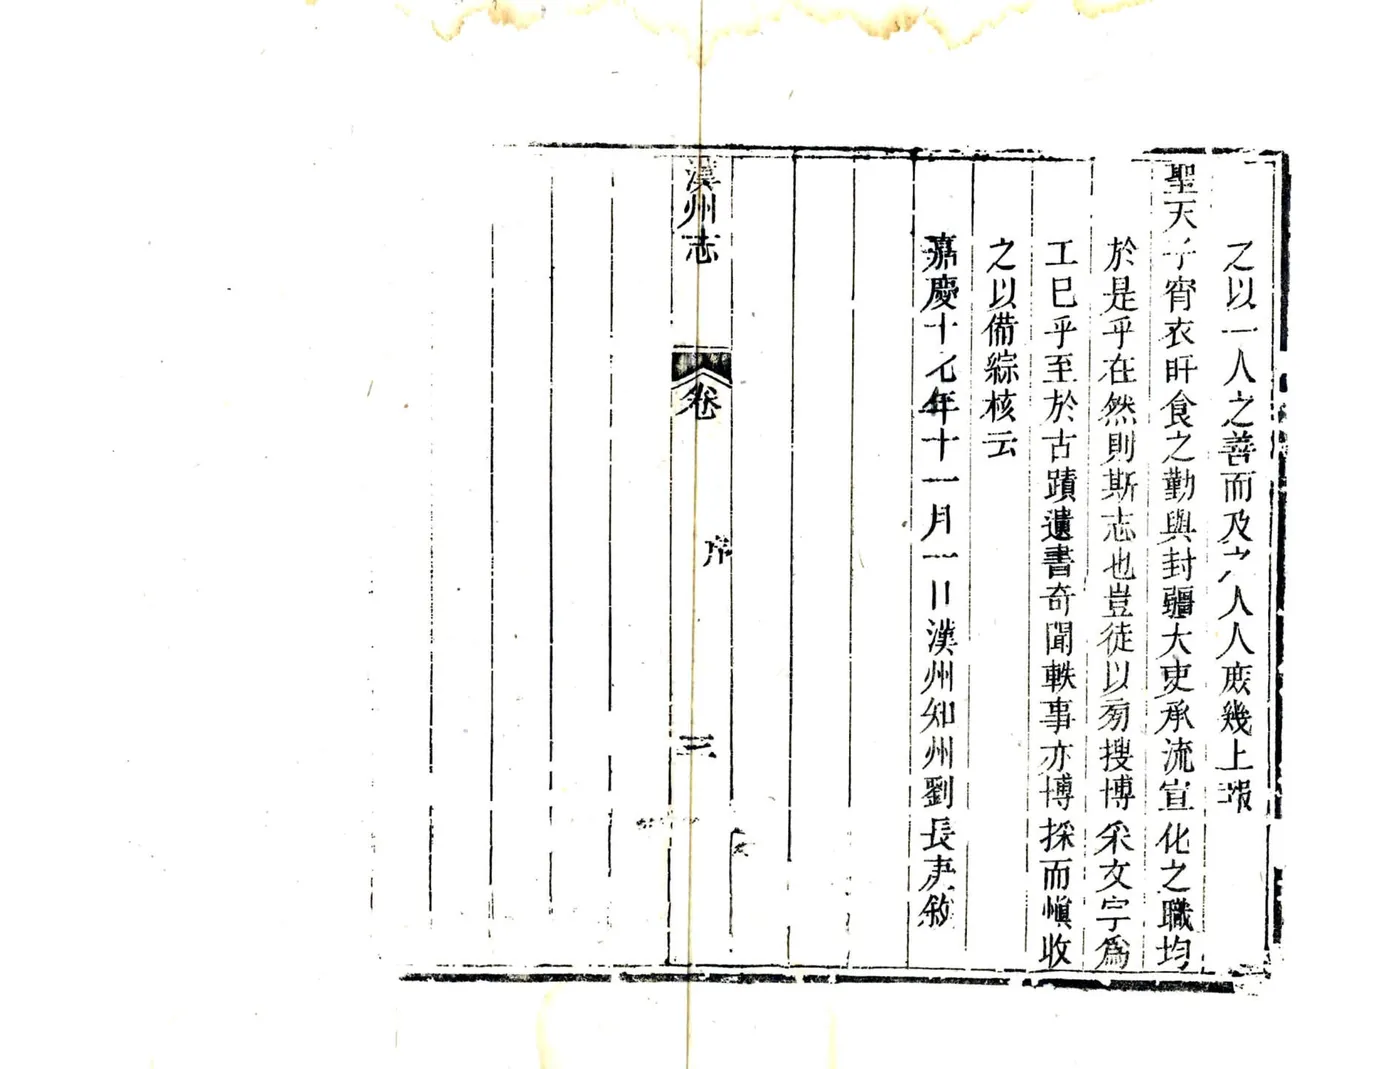 之以一人之善而及之人人庶幾上報
聖天子宵衣旰食之勤與封疆大吏承流宣化之職均
於是乎在然則斯志也豈徒以旁搜博采文字為
工已乎至於古蹟遺書奇聞軼事亦博採而慎收
之以備綜核云
嘉慶十七年十一月一日漢州知州劉長庚敘
漢州志
卷
序
三